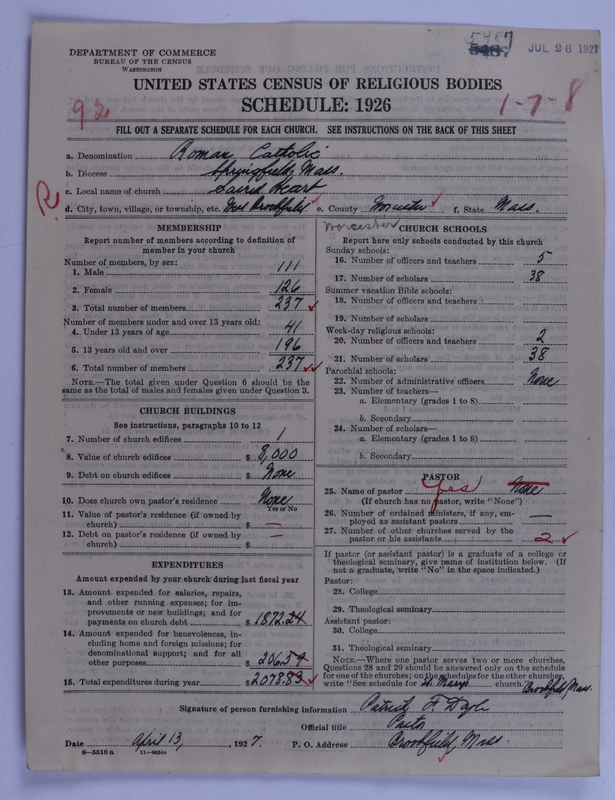 5487
5487 JUL 26 1927
DEPARTMENT OF COMMERCE
BUREAU OF THE CENSUS
WASHINGTON
UNITED STATES CENSUS OF RELIGIOUS BODIES
SCHEDULE: 1926
92
1-7-8
FILL OUT A SEPARATE SCHEDULE FOR EACH CHURCH. SEE INSTRUCTIONS ON THE BACK OF THIS SHEET
a. Denomination Roman Catholic
b. Diocese Springfield, Mass.
c. Local name of church Sacred Heart
R
d. City, town, village, or township, etc. West Brookfield e. County Worcester f. State Mass.
Worcester
MEMBERSHIP
Report number of members according to definition of
member in your church
Number of members, by sex:
1. Male 111
2. Female 126
3. Total number of members 237
Number of members under and over 13 years old:
4. Under 13 years of age 41
5. 13 years old and over 196
6. Total number of members 237
NOTE.—The total given under Question 6 should be the
same as the total of males and females given under Question 3.
CHURCH BUILDINGS
See instructions, paragraphs 10 to 12
7. Number of church edifices 1
8. Value of church edifices $ 8,000
9. Debt on church edifices $ None
10. Does church own pastor's residence None
Yes or No
11. Value of pastor's residence (if owned by
church) $ —
12. Debt on pastor's residence (if owned by
church) $ —
EXPENDITURES
Amount expended by church during last fiscal year
13. Amount expended for salaries, repairs,
and other running expenses; for im-
provements or new buildings; and for
payments on church debt $ 1872.24
14. Amount expended for benevolences, in-
cluding home and foreign missions; for
denominational support; and for all
other purposes $ 206.59
15. Total expenditures during year $ 2078.83
CHURCH SCHOOLS
Report here only schools conducted by this church
Sunday schools:
16. Number of officers and teachers 5
17. Number of scholars 38
Summer vacation Bible schools:
18. Number of officers and teachers
19. Number of scholars
Week-day religious schools:
20. Number of officers and teachers 2
21. Number of scholars 38
Parochial schools:
22. Number of administrative officers None
23. Number of teachers—
a. Elementary (grades 1 to 8)
b. Secondary
24. Number of scholars—
a. Elementary (grades 1 to 8)
b. Secondary
PASTOR
25. Name of pastor Yes None
(If church has no pastor, write "None")
26. Number of ordained ministers, if any, em-
ployed as assistant pastors —
27. Number of other churches served by the
pastor or his assistants 2
If pastor (or assistant pastor) is a graduate of a college or
theological seminary, give name of institution below. (If
not a graduate, write "No" in the space indicated.)
Pastor:
28. College
29. Theological seminary
Assistant pastor:
30. College
31. Theological seminary
NOTE.—Where one pastor serves two or more churches,
Questions 28 and 29 should be answered only on the schedule
for one of the churches; on the schedules for the other churches,
write "See schedule for St. Mary's church." Brookfield, Mass.
Signature of person furnishing information Patrick F. Doyle
Official title Pastor
Date April 13, 1927. P. O. Address Brookfield, Mass.
8—5518 a